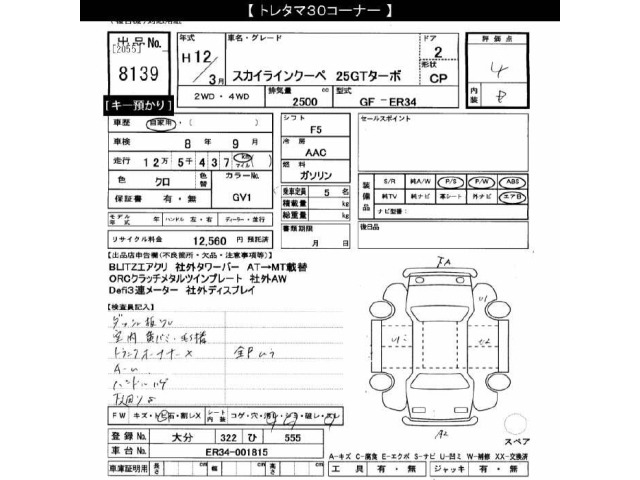 【 トレタマ30コーナー 】
出品No.
[2055]
8139
[キー預かり]
年式
H 12/3月
車名・グレード
スカイラインクーペ 25GTターボ
ドア
2
形状
CP
評価点
4
内装
2WD・4WD
排気量
2500
cc
型式
GF - ER34
車歴 自家用・( )
車検 8年 9月
走行 12万5千437 km マイル ( )
色 クロ
色替
カラーNo.
GV1
保証書 有・無
シフト
F5
冷房
AAC
燃料
ガソリン
乗車定員 5 名
積載量 kg
総重量 kg
セールスポイント
装備品
S/R 純A/W P/S P/W ABS
純TV 純ナビ 革シート 外ナビ エアB
ナビ型番:
モデル年式 年 ハンドル 左・右 ディーラー・並行
書類期限
月 日
後日品
リサイクル料金 12,560 円 預託済
【出品店申告欄(不良箇所・欠品・注意事項等)】
BLITZエアクリ 社外タワーバー AT→MT載替
ORCクラッチメタルツインプレート 社外AW
Defi3連メーター 社外ディスプレイ
【検査員記入】
FW キズ・ヒビ・石・割レX
シート内装 コゲ・穴・汚レ・シミ・破レ・スレ
登録No. 大分 322 ひ 555
車台No. ER34-001815
車庫証明用 長さ cm 幅 cm 高さ cm
FA
U1
U2
A2
スペア
A-キズ C-腐食 E-エクボ S-サビ U-凹ミ W-補修 XX-交換済
工具 有・無 ジャッキ 有・無